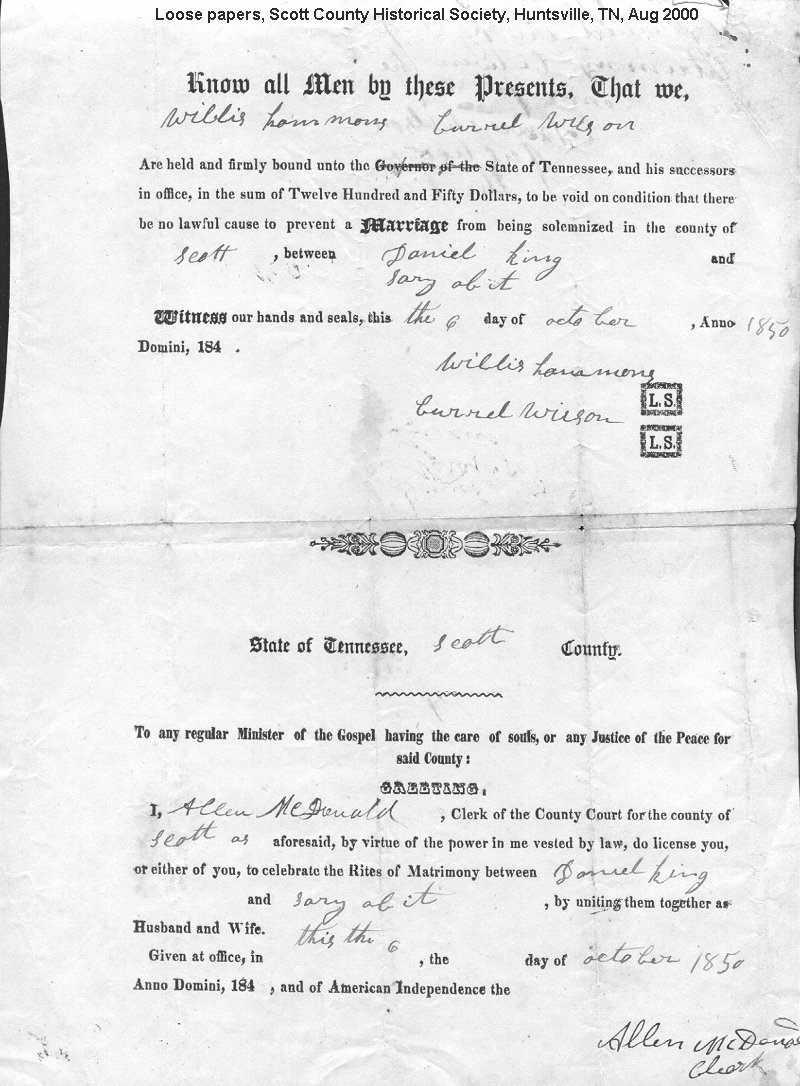 Loose papers, Scott County Historical Society, Huntsville, TN, Aug 2000
Know all Men by these Presents, That we,
Willis hammons burrel Wilson
Are held and firmly bound unto the Governor of the State of Tennessee, and his successors
in office, in the sum of Twelve Hundred and Fifty Dollars, to be void on condition that there
be no lawful cause to prevent a Marriage from being solemnized in the county of
scott , between Daniel king and
sary abit
Witness our hands and seals, this the 6 day of october , Anno 1850
Domini, 184 .
Willis hammons
L. S.
burrel Wilson
L. S.
State of Tennessee, scott County.
To any regular Minister of the Gospel having the care of souls, or any Justice of the Peace for
said County:
GREETING,
I, Allen McDonald , Clerk of the County Court for the county of
scott as aforesaid, by virtue of the power in me vested by law, do license you,
or either of you, to celebrate the Rites of Matrimony between Daniel king
and sary abit , by uniting them together as
Husband and Wife.
this the 6
Given at office, in , the day of october 1850
Anno Domini, 184 , and of American Independence the
Allen McDonald
Clerk